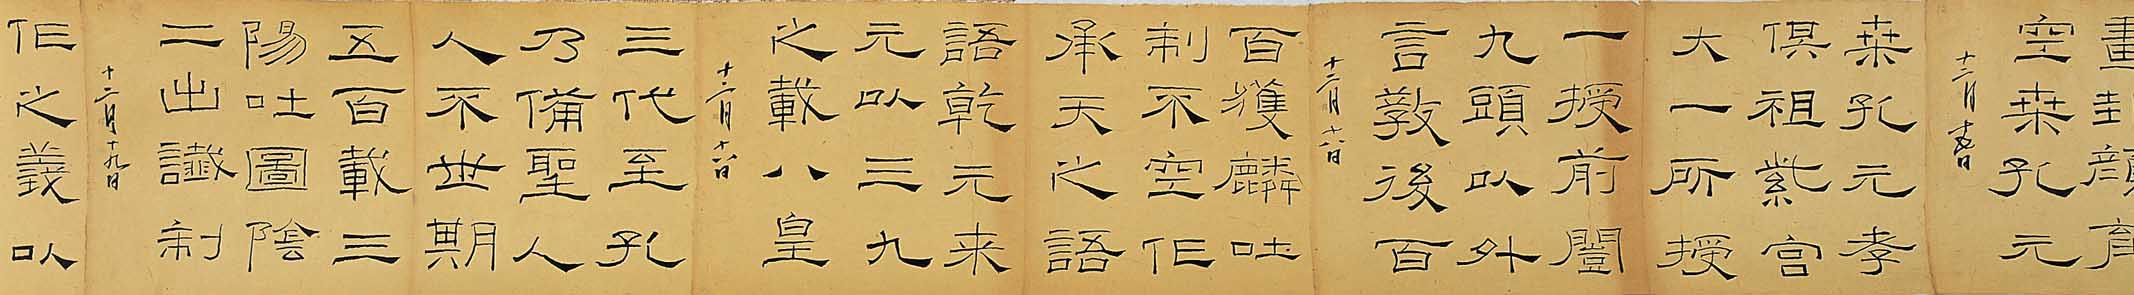 畫封顏育
空桒孔元
十二月
桒孔元孝
俱祖紫宮
大一所授
一授前闓
九頭以什
言教後百
十二月十八日
百獲麟吐
制不空作
承天之語
語乾元来
元以三九
之載八皇
十二月十八日
三代至孔
乃備聖人
人不世期
五百載三
陽吐圖陰
二出讖制
十二月十九日
作之義以